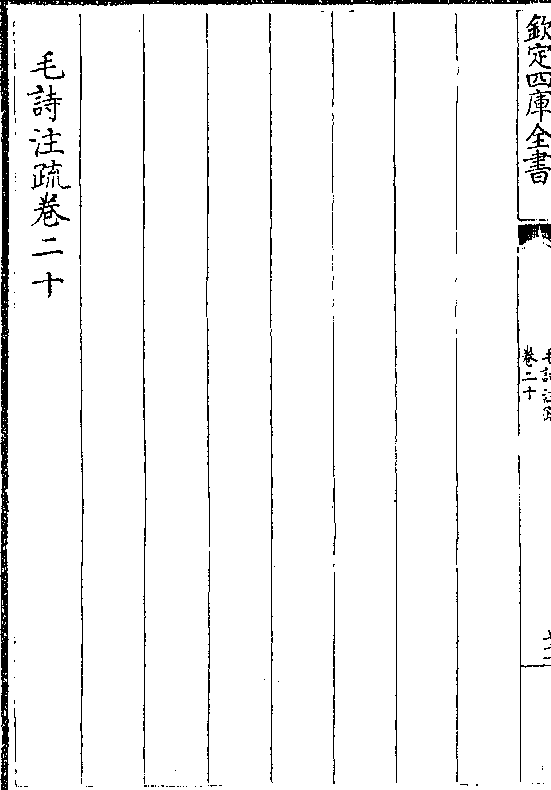 欽定四庫全書
毛詩注疏
卷二十
毛詩注疏卷二十